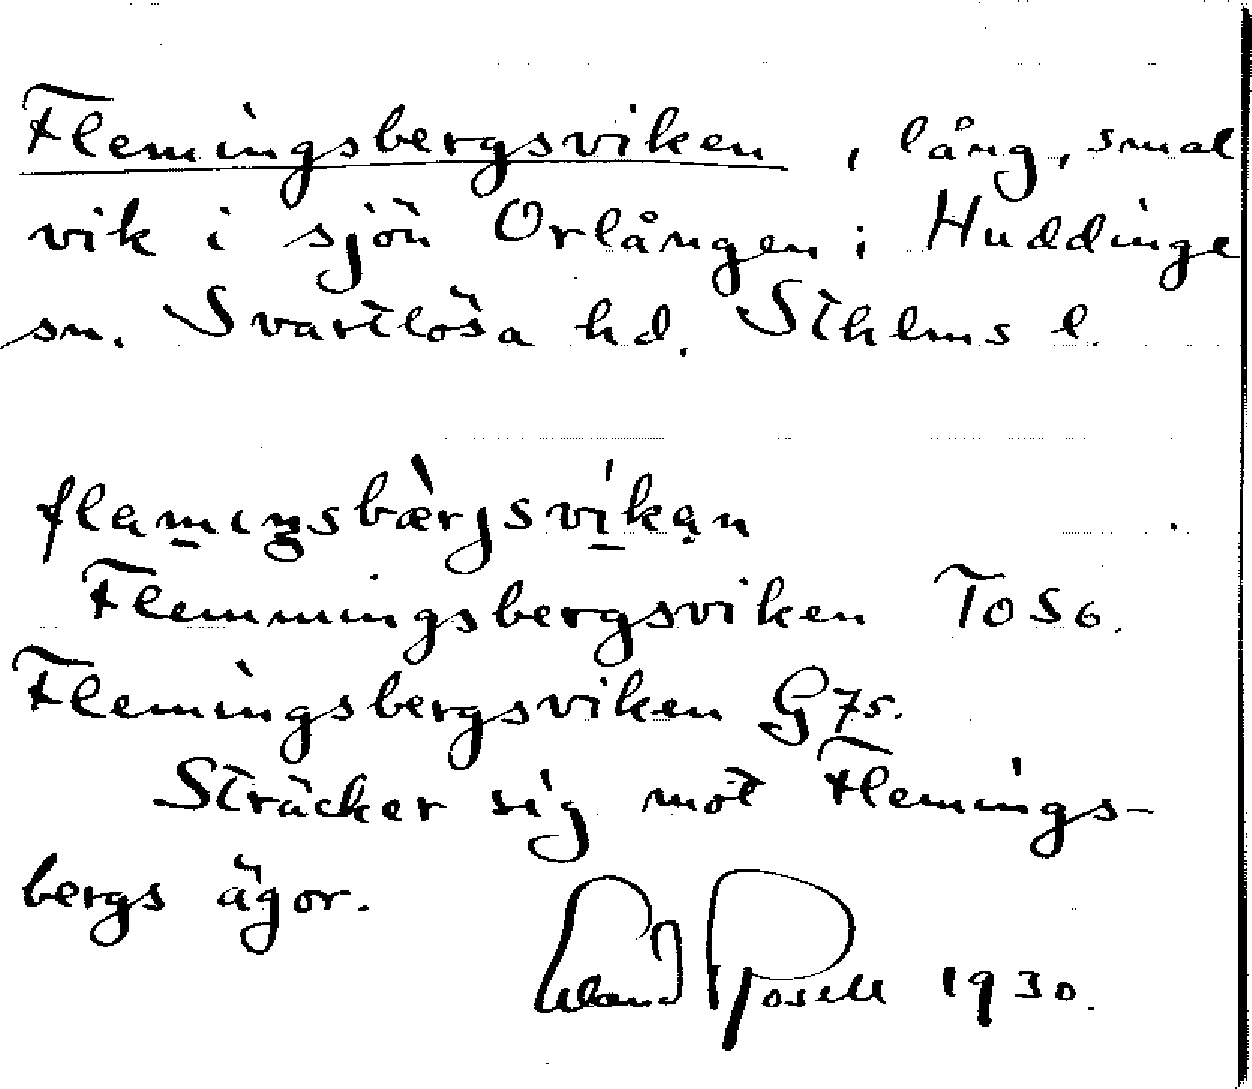 Flemingsbergsviken, lång, smal
vik i sjön Orlången i Huddinge
sn. Svartlösa hd. Sthlms l.
flamıŋsbærjsvikan
Flemmingsbergsviken ToS6.
Flemingsbergsviken G75.
Sträcker sig mot Flemings-
bergs ägor.
Erland Rosell 1930.